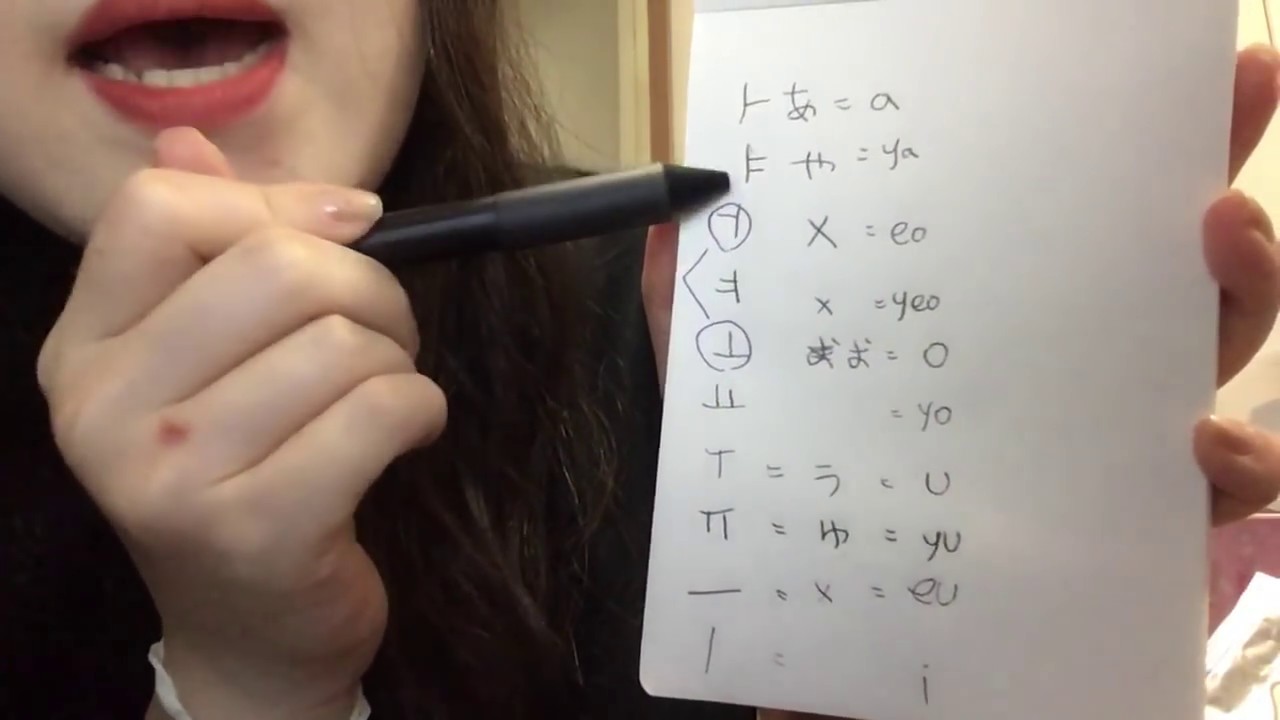 ㅏ あ = a
ㅑ や = ya
ㅓ X = eo
ㅕ x = yeo
ㅗ お = o
ㅛ = yo
ㅜ = う = u
ㅠ = ゆ = yu
ㅡ = x = eu
ㅣ = i